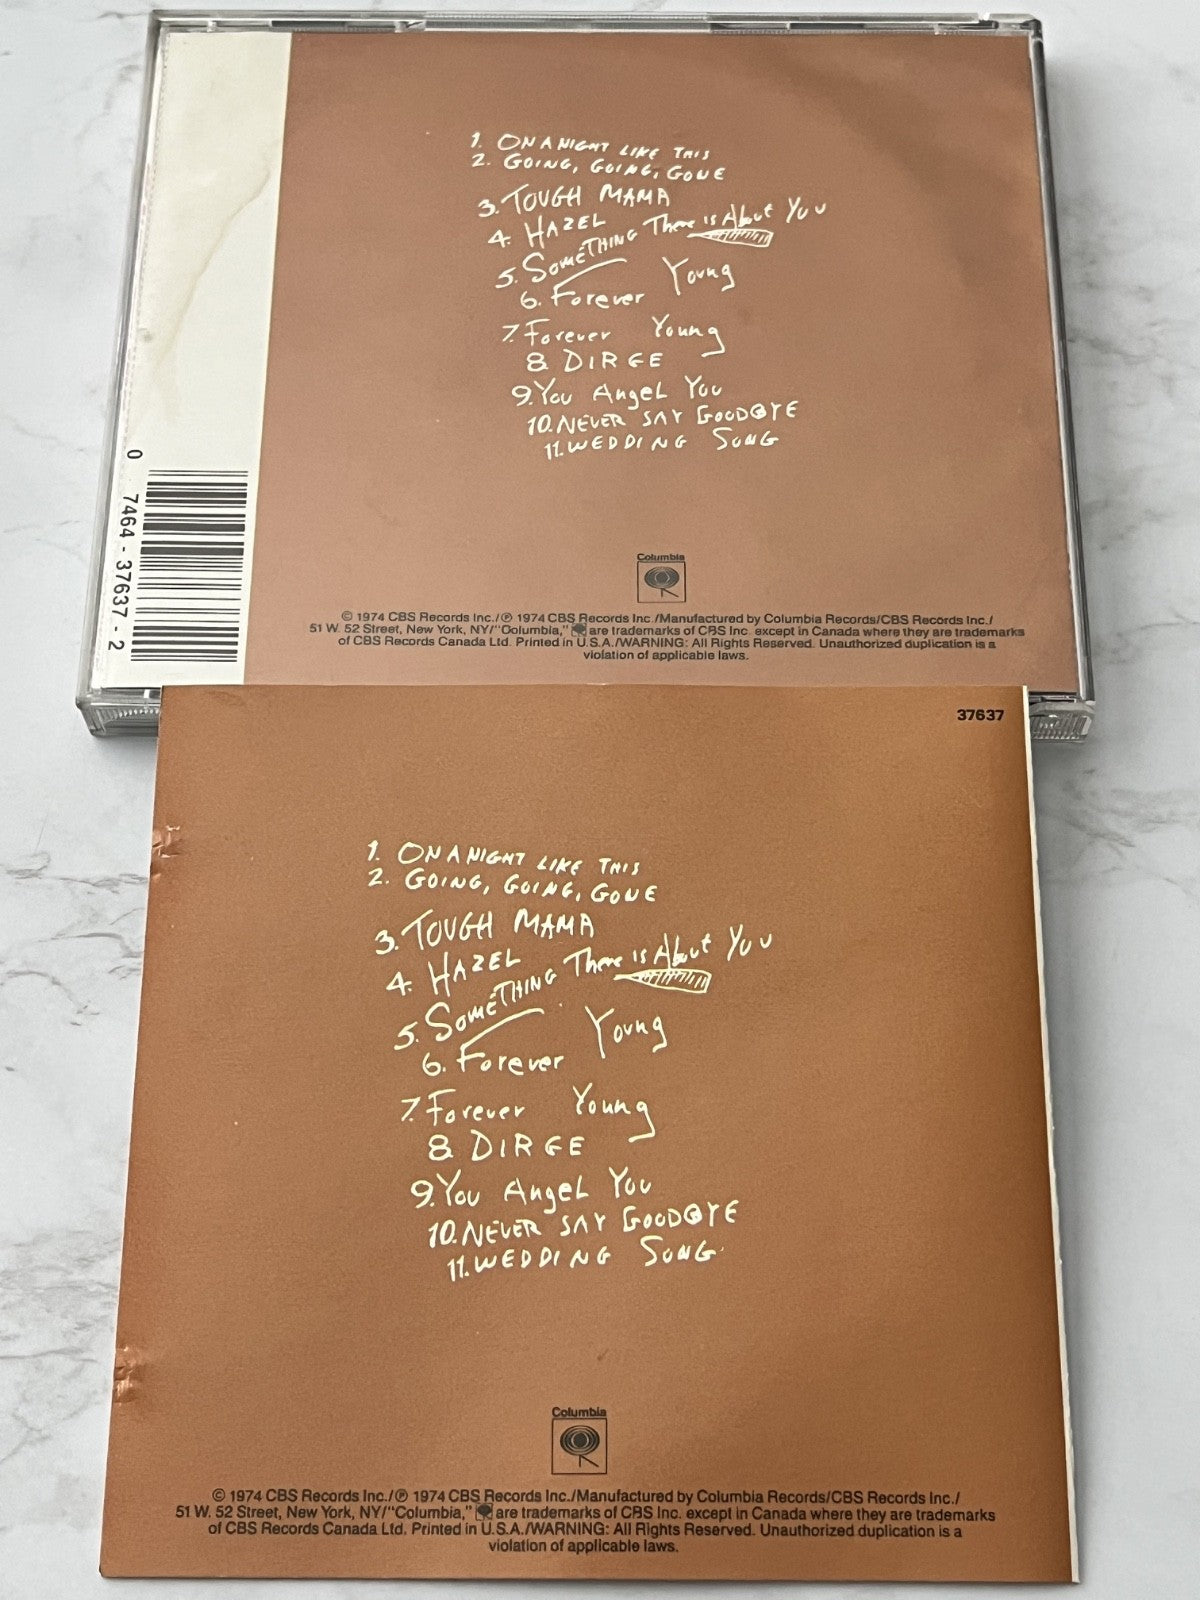 1. ON A NIGHT LIKE THIS
2. GOING, GOING, GONE
3. TOUGH MAMA
4. HAZEL
5. SOMETHING There is About You
6. Forever Young
7. Forever Young
8. DIRGE
9. You Angel You
10. NEVER SAY GOODBYE
11. WEDDING SONG
0 7464-37637-2
Columbia
© 1974 CBS Records Inc./℗ 1974 CBS Records Inc./Manufactured by Columbia Records/CBS Records Inc./
51 W. 52 Street, New York, NY/"Columbia," are trademarks of CBS Inc. except in Canada where they are trademarks
of CBS Records Canada Ltd. Printed in U.S.A./WARNING: All Rights Reserved. Unauthorized duplication is a
violation of applicable laws.
37637
1. ON A NIGHT LIKE THIS
2. GOING, GOING, GONE
3. TOUGH MAMA
4. HAZEL
5. SOMETHING There is About You
6. Forever Young
7. Forever Young
8. DIRGE
9. You Angel You
10. NEVER SAY GOODBYE
11. WEDDING SONG
Columbia
© 1974 CBS Records Inc./℗ 1974 CBS Records Inc./Manufactured by Columbia Records/CBS Records Inc./
51 W. 52 Street, New York, NY/"Columbia," are trademarks of CBS Inc. except in Canada where they are trademarks
of CBS Records Canada Ltd. Printed in U.S.A./WARNING: All Rights Reserved. Unauthorized duplication is a
violation of applicable laws.